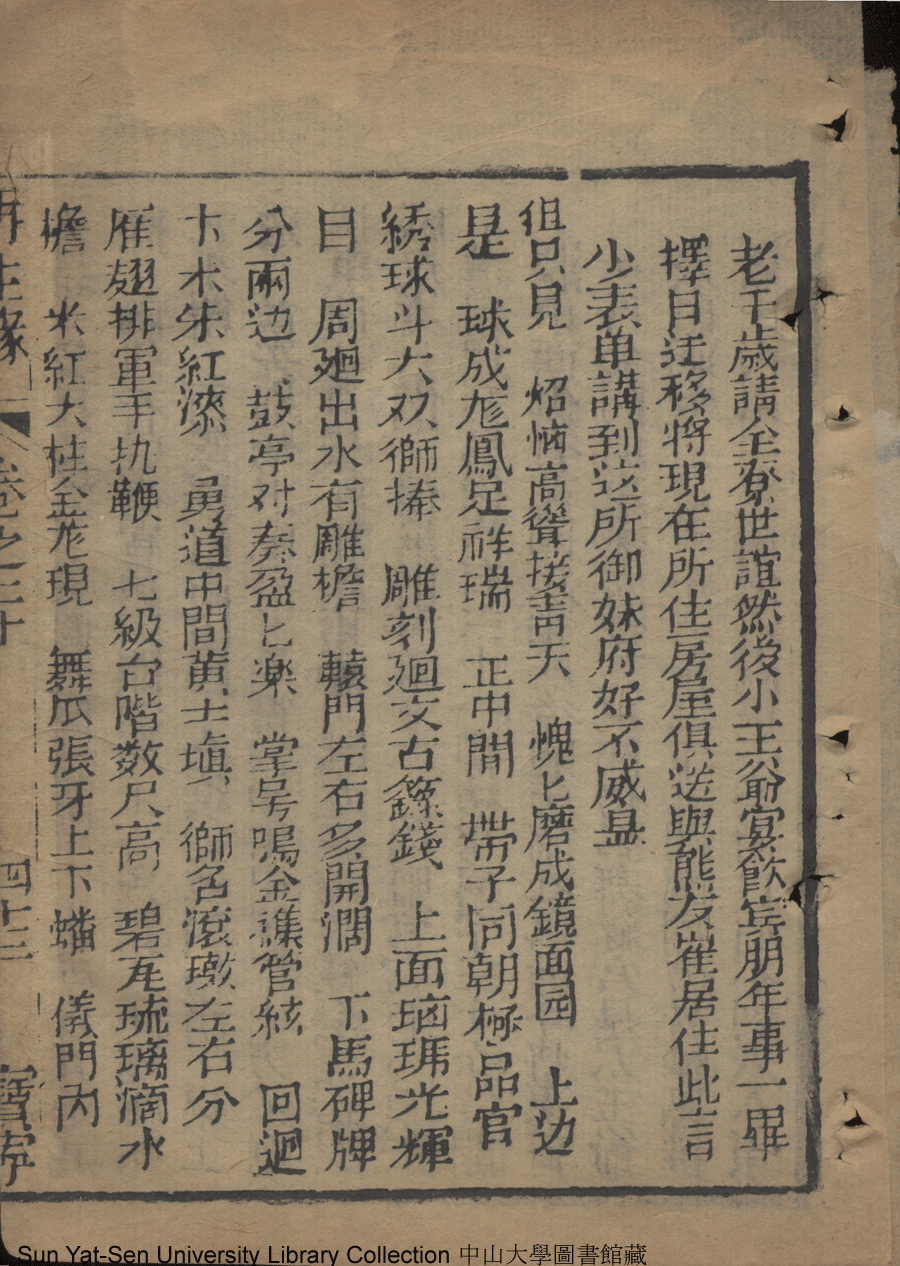 老千歲請全寮世誼然後小王爺宴飲宾朋年事一畢
擇日迁移將現在所住房屋俱送與熊友崔居住此言
少表单講到这所御妹府好不威昷
但只見　炤墙高聳接青天　愧匕磨成鏡面园　上边
是　球成尨鳳足祥瑞　正中間　带子同朝極品官
綉球斗大双獅捧　雕刻廻文古錢　上面瑙瑪光輝
目　周廻出水有雕檐　轅門左右多開濶　下馬碑牌
分兩边　鼓亭对奏盈匕樂　掌号鳴金管絃　回廻
卞木朱紅漆　甬道中間黄土塡　獅名滾墩左右分
雁翅排軍手执鞭　七級台階数尺高　碧瓦琉璃滴水
檐　米紅大柱金尨現　舞爪張牙上下蟠　儀門內
再生緣　卷之二十　四十三　寶寧
Sun Yat-Sen University Library Collection 中山大學圖書館藏